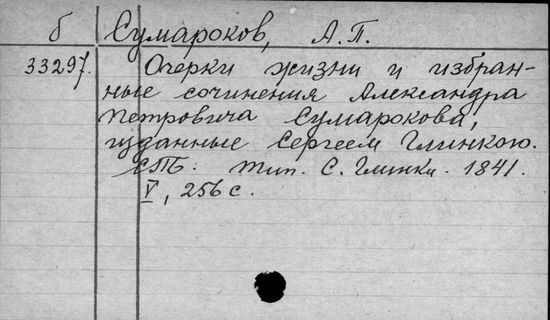 б Сумароков, А.П.
33297. Очерки жизни и избран-
ные сочинения Александра
Петровича Сумарокова,
изданные Сергеем Глинкою.
СПБ. тип. С. Глинки. 1841.
V, 256 с.